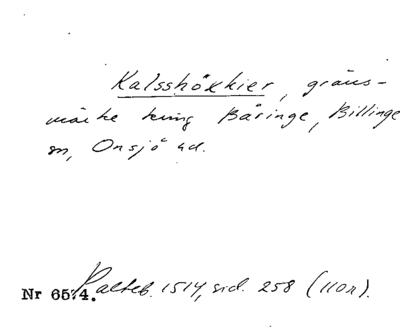 Kalsshöxkier, gräns-
märke kring Bäringe, Billinge
sn, Onsjö hd.
Palteb. 1514, sid. 258 (110r).
Nr 6574.